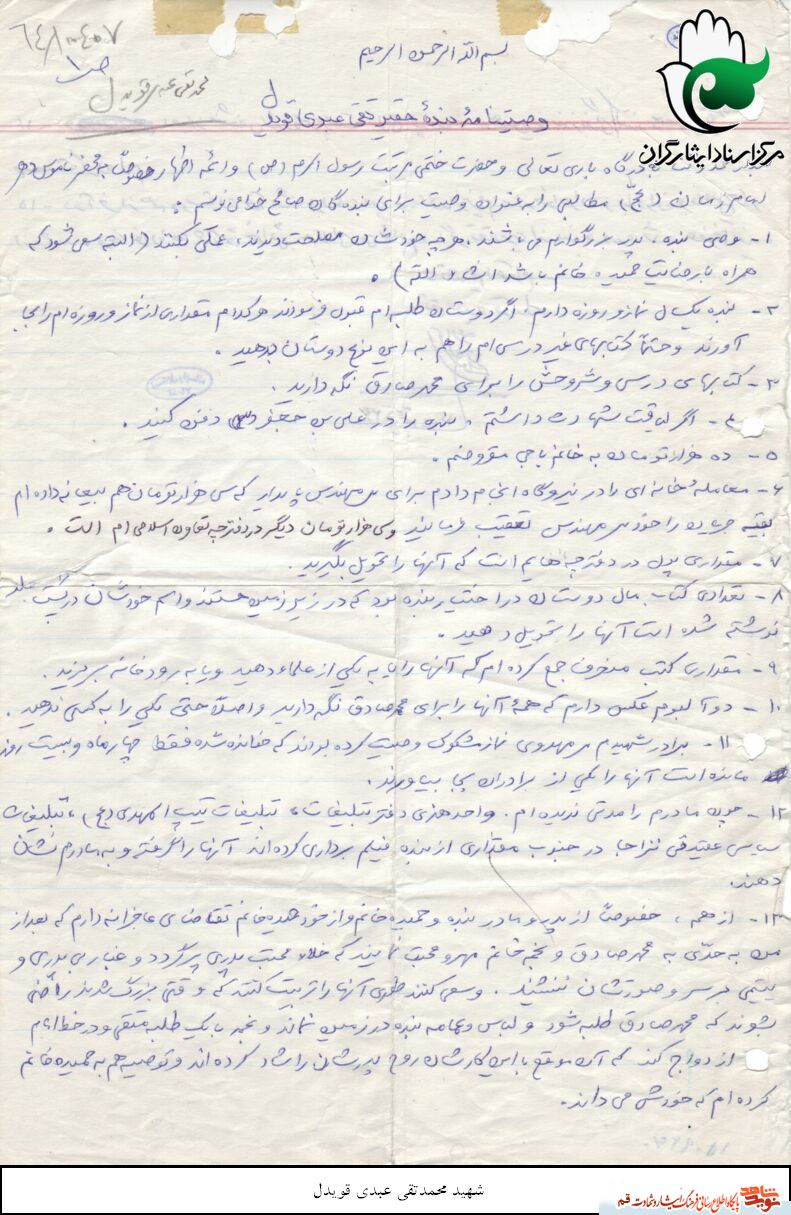 بسم الله الرحمن الرحیم
محمد تقی عبدی قویدل
ص ۱
وصیتنامهٔ بندهٔ حقیر تقی عبدی قویدل
مرکز اسناد ایثارگران
درگاه باری تعالی و حضرت ختمی مرتبت رسول اکرم (ص) و ائمه اطهار خصوصاً به محضر ناموس دهر
امام زمان (عج) مطالبی را به عنوان وصیت برای بنده گان صالح خدا می نویسم :
۱- وصی بنده ، پدر بزرگوارم می باشند ، هر چه خودشان مصلحت دیدند ، عملی بکنند ( البته سعی شود که
همراه با رضایت حمیده خانم باشد انشاء الله ) .
۲- بنده یکسال نماز و روزه دارم ، اگر دوستان طلبه ام قبول فرمودند هر کدام مقداری از نماز و روزه ام را بجا
آورند و حتماً کتابهای غیر درسی ام را هم به این نوع دوستان بدهید .
۳- کتابهای درسی و شروحش را برای محمد صادق نگه دارید .
۴- اگر لیاقت شهادت داشتم ، بنده را در علی بن جعفر (س) دفن کنید .
۵- ده هزار تومان به خانم باجی مقروضم .
۶- معاملهٔ خانه ای را در نیروگاه انجام دادم برای مهندس پایدار که سی هزار تومان هم بیعانه داده ام
بقیه جریان را خود مهندس تعقیب فرمایند و سی هزار تومان دیگر در دفترچه تعاون اسلامی ام است .
۷- مقداری پول در دفترچه هایم است که آنها را تحویل بگیرید .
۸- تعدادی کتاب مال دوستان در اختیار بنده بود که در زیر زمین هستند و اسم خودشان در پشت جلد
نوشته شده است آنها را تحویل دهید .
۹- مقداری کتب منحرف جمع کرده ام که آنها را یا به یکی از علماء دهید و یا به رودخانه بریزید .
۱۰- دو آلبوم عکس دارم که همهٔ آنها را برای محمد صادق نگه دارید و اصلاً حتی یکی را به کسی ندهید .
۱۱- برادر شهیدم مهدوی نماز مشکوک وصیت کرده بودند که خوانده شده فقط چهار ماه و بیست روز
مانده است آنها را یکی از برادران بجا بیاورند .
۱۲- چون مادرم را مدتی ندیده ام . واحد هنری دفتر تبلیغات ، تبلیغات تیپ المهدی (عج) ، تبلیغات
سیاسی عقیدتی نزاجا در جنوب مقداری از بنده فیلم برداری کرده اند آنها را گرفته و به مادرم نشان
دهند .
۱۳- از همه ، خصوصاً از پدر و مادر بنده و حمیده خانم و از خود حمیده خانم تقاضای عاجزانه دارم که بعد از
من به حدّی به محمد صادق و نجمه خانم مهر و محبت نمایند که خلاء محبت پدری پر گردد و غبار بی پدری و
یتیمی بر سر و صورتشان ننشیند . و سعی کنند طوری آنها را تربیت کنند که وقتی بزرگ شدند راضی
بشوند که محمد صادق طلبه شود و لباس و عمامه بنده در زمین نماند و نجمه با یک طلبه متقی و در خط امام
ازدواج کند که آن موقع با این کارشان روح پدرشان را شاد کرده اند و توصیه هم به حمیده خانم
کرده ام که خودش می داند .
شهید محمدتقی عبدی قویدل
نوید شاهد
پایگاه اطلاع رسانی فرهنگ ایثار و شهادت قم